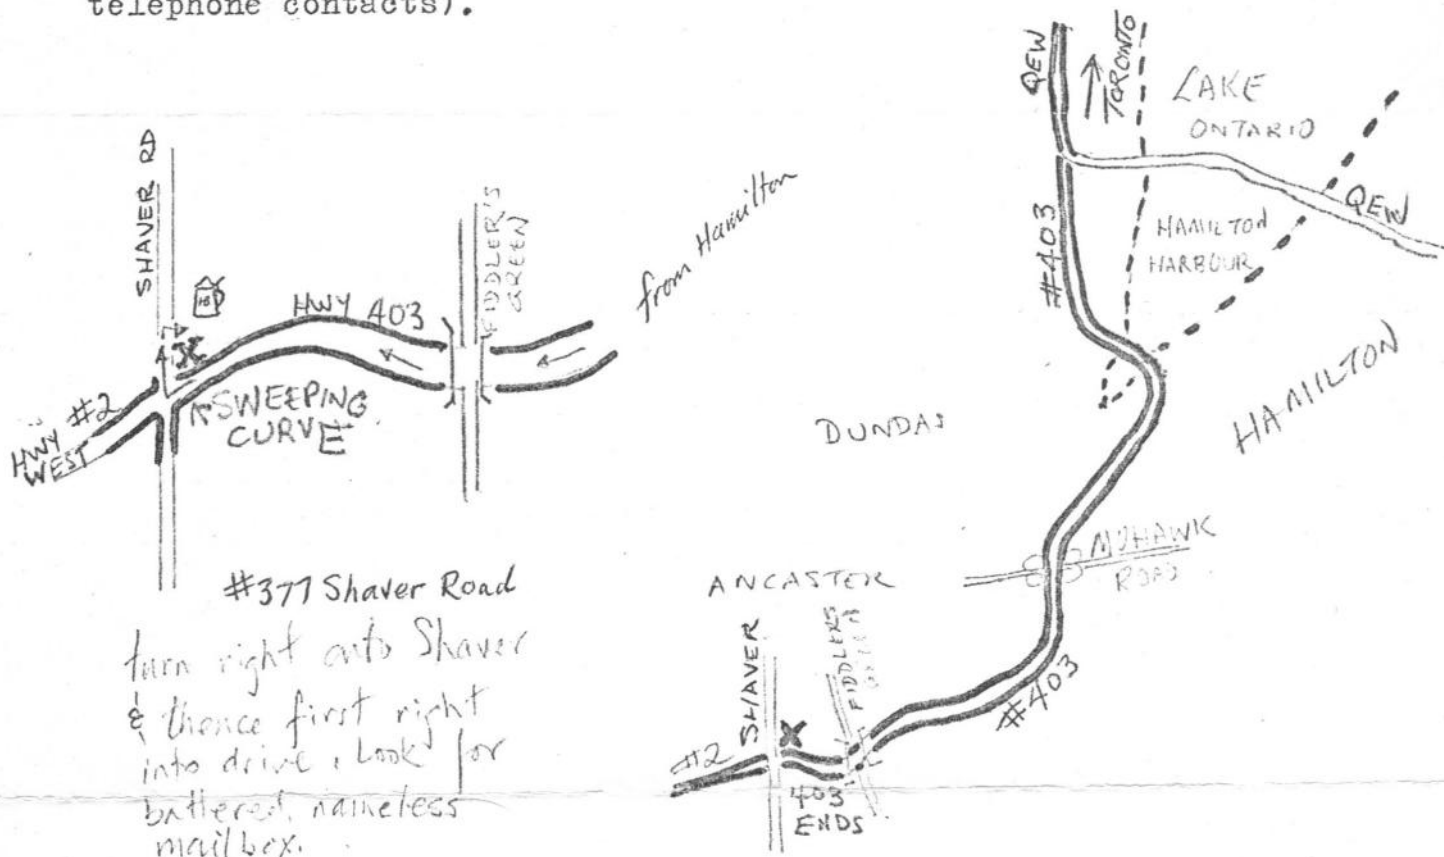 telephone contacts).
SHAVER RD
HB
HWY 403
FIDDLER'S
GREEN
from Hamilton
X
HWY #2
WEST
SWEEPING
CURVE
#377 Shaver Road
turn right onto Shaver
& thence first right
into drive. Look for
battered, nameless
mailbox.
QEW
TORONTO
LAKE
ONTARIO
QEW
#403
HAMILTON
HARBOUR
HAMILTON
DUNDAS
MOHAWK
ROAD
ANCASTER
SHAVER
FIDDLERS
GREEN
X
#403
#2
403
ENDS